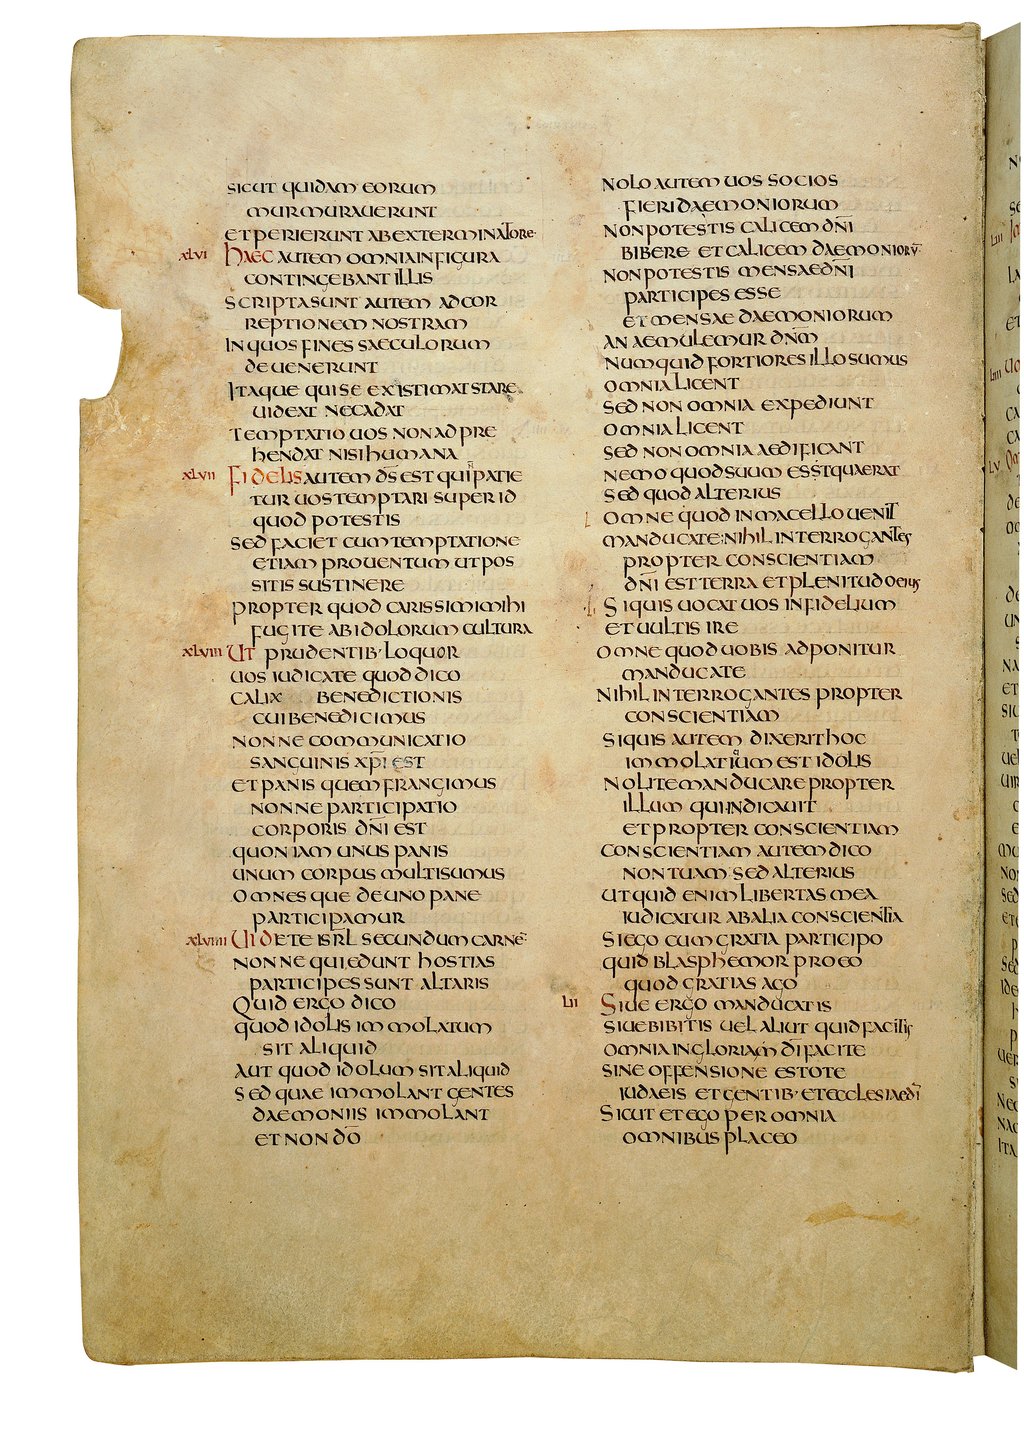 SICUT QUIDAM EORUM
MURMURAUERUNT
ET PERIERUNT AB EXTERMINATORE·
XLVI HAEC AUTEM OMNIA IN FIGURA
CONTINGEBANT ILLIS
SCRIPTA SUNT AUTEM AD COR
REPTIONEM NOSTRAM
IN QUOS FINES SAECULORUM
DEUENERUNT
ITAQUE QUI SE EXISTIMAT STARE
UIDEAT NE CADAT
TEMPTATIO UOS NON AD PRE
HENDAT NISI HUMANA
XLVII FIDELIS AUTEM D̅S̅ EST QUI PATIE
TUR UOS TEMPTARI SUPER ID
QUOD POTESTIS
SED FACIET CUM TEMPTATIONE
ETIAM PROUENTUM UT POS
SITIS SUSTINERE
PROPTER QUOD CARISSIMI MIHI
FUGITE AB IDOLORUM CULTURA
XLVIII UT PRUDENTIB· LOQUOR
UOS IUDICATE QUOD DICO
CALIX BENEDICTIONIS
CUI BENEDICIMUS
NONNE COMMUNICATIO
SANGUINIS X̅P̅I̅ EST
ET PANIS QUEM FRANGIMUS
NONNE PARTICIPATIO
CORPORIS D̅N̅I̅ EST
QUONIAM UNUS PANIS
UNUM CORPUS MULTI SUMUS
OMNESQUE DE UNO PANE
PARTICIPAMUR
XLVIIII UIDETE ISR̅L̅ SECUNDUM CARNE̅·
NONNE QUI EDUNT HOSTIAS
PARTICIPES SUNT ALTARIS
QUID ERGO DICO
QUOD IDOLIS IMMOLATUM
SIT ALIQUID
AUT QUOD IDOLUM SIT ALIQUID
SED QUAE IMMOLANT GENTES
DAEMONIIS IMMOLANT
ET NON D̅O̅
NOLO AUTEM UOS SOCIOS
FIERI DAEMONIORUM
NON POTESTIS CALICEM D̅N̅I̅
BIBERE ET CALICEM DAEMONIORU̅·
NON POTESTIS MENSAE D̅N̅I̅
PARTICIPES ESSE
ET MENSAE DAEMONIORUM
AN AEMULEMUR D̅N̅M̅
NUMQUID FORTIORES ILLO SUMUS
OMNIA LICENT
SED NON OMNIA EXPEDIUNT
OMNIA LICENT
SED NON OMNIA AEDIFICANT
NEMO QUOD SUUM EST QUAERAT
SED QUOD ALTERIUS
L OMNE QUOD IN MACELLO UENIT
MANDUCATE· NIHIL INTERROGANTES
PROPTER CONSCIENTIAM
D̅N̅I̅ EST TERRA ET PLENITUDO EIUS
SI QUIS UOCAT UOS INFIDELIUM
ET UULTIS IRE
OMNE QUOD UOBIS ADPONITUR
MANDUCATE
NIHIL INTERROGANTES PROPTER
CONSCIENTIAM
SI QUIS AUTEM DIXERIT HOC
IMMOLATIUM EST IDOLIS
NOLITE MANDUCARE PROPTER
ILLUM QUI INDICAUIT
ET PROPTER CONSCIENTIAM
CONSCIENTIAM AUTEM DICO
NON TUAM SED ALTERIUS
UT QUID ENIM LIBERTAS MEA
IUDICATUR AB ALIA CONSCIENTIA
SI EGO CUM GRATIA PARTICIPO
QUID BLASPHEMOR PRO EO
QUOD GRATIAS AGO
LII SIUE ERGO MANDUCATIS
SIUE BIBITIS UEL ALIUT QUID FACITIS
OMNIA IN GLORIAM D̅I̅ FACITE
SINE OFFENSIONE ESTOTE
IUDAEIS ET GENTIB· ET ECCLESIAE D̅I̅
SICUT ET EGO PER OMNIA
OMNIBUS PLACEO